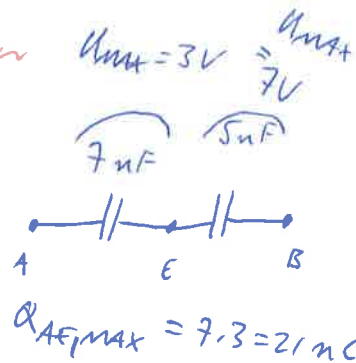 U_MAX = 3V = U_MAX
7V
7 nF 5nF
A E B
Q_AE,MAX = 7.3 = 21 nC